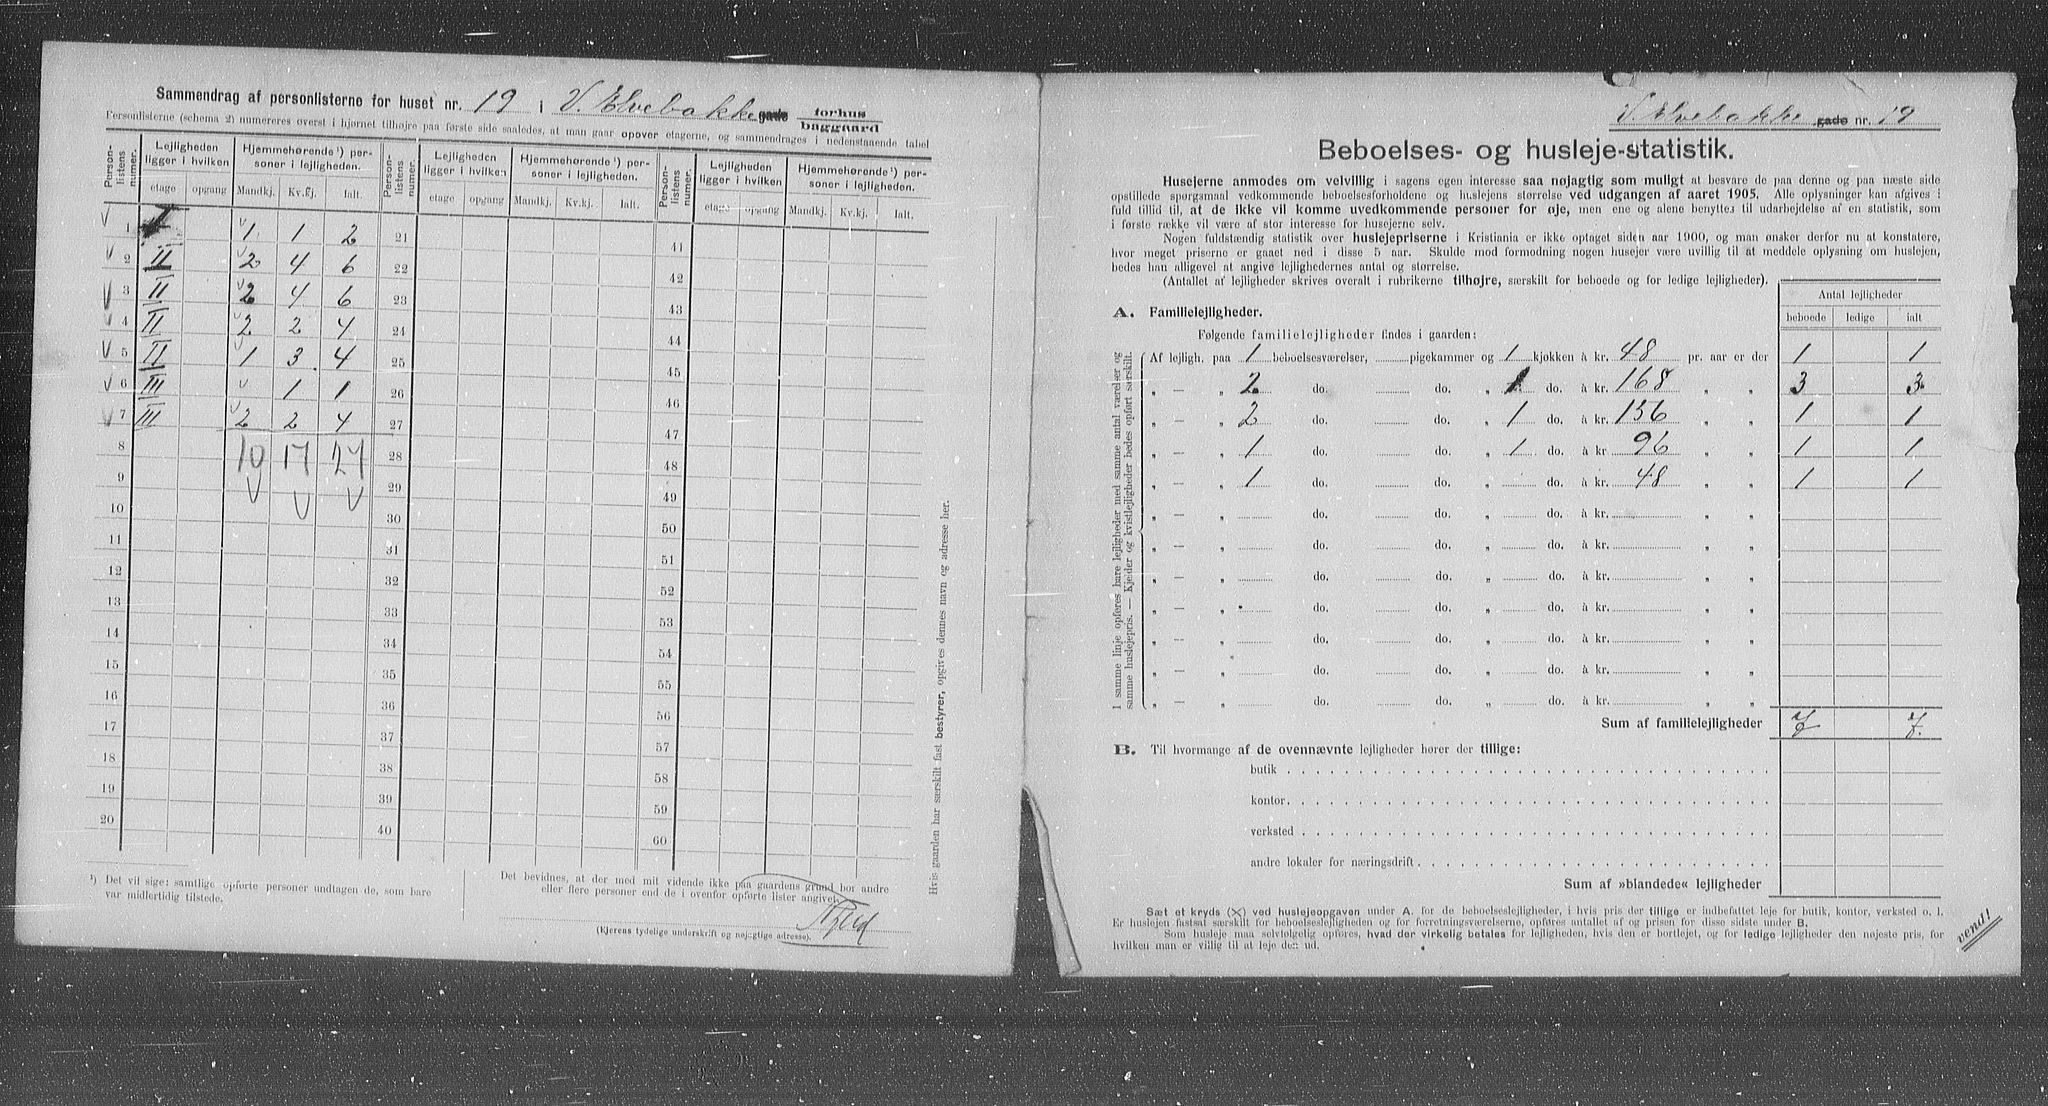 Sammendrag af personlisterne for huset nr. 19 i V. Elvebakke gade forhus baggaard
Personlisterne (schema 2) numereres øverst i hjørnet tilhøjre paa første side saaledes, at man gaar opover etagerne, og sammendrages i nedenstaaende tabel
Person-listens numer. Lejligheden ligger i hvilken Hjemmehørende¹) personer i lejligheden. Person-listens numer. Lejligheden ligger i hvilken Hjemmehørende¹) personer i lejligheden. Person-listens numer. Lejligheden ligger i hvilken Hjemmehørende¹) personer i lejligheden.
etage opgang Mandkj. Kv.kj. Ialt. etage opgang Mandkj. Kv.kj. Ialt. etage opgang Mandkj. Kv.kj. Ialt.
V 1 I V 1 1 2 21 41
V 2 II V 2 4 6 22 42
V 3 II V 2 4 6 23 43
V 4 II V 2 2 4 24 44
V 5 II V 1 3 4 25 45
V 6 III V 1 1 26 46
V 7 III V 2 2 4 27 47
8 10 17 27 28 48
9 V V V 29 49
10 30 50
11 31 51
12 32 52
13 33 53
14 34 54
15 35 55
16 36 56
17 37 57
18 38 58
19 39 59
20 40 60
¹) Det vil sige: samtlige opførte personer undtagen de, som bare
var midlertidig tilstede.
Det bevidnes, at der med mit vidende ikke paa gaardens grund bor andre
eller flere personer end de i ovenfor opførte lister angivet.
(Ejerens tydelige underskrift og nøjagtige adresse).
Hvis gaarden har særskilt fast bestyrer, opgives dennes navn og adresse her.
V. Elvebakke gade nr. 19
Beboelses- og husleje-statistik.
Husejerne anmodes om velvillig i sagens egen interesse saa nøjagtig som muligt at besvare de paa denne og paa næste side
opstillede spørgsmaal vedkommende beboelsesforholdene og huslejens størrelse ved udgangen af aaret 1905. Alle oplysninger kan afgives i
fuld tillid til, at de ikke vil komme uvedkommende personer for øje, men ene og alene benyttes til udarbejdelse af en statistik, som
i første række vil være af stor interesse for husejerne selv.
Nogen fuldstændig statistik over huslejepriserne i Kristiania er ikke optaget siden aar 1900, og man ønsker derfor nu at konstatere,
hvor meget priserne er gaaet ned i disse 5 aar. Skulde mod formodning nogen husejer være uvillig til at meddele oplysning om huslejen,
bedes han alligevel at angive lejlighedernes antal og størrelse.
(Antallet af lejligheder skrives overalt i rubrikerne tilhøjre, særskilt for beboede og for ledige lejligheder).
Antal lejligheder
beboede ledige ialt
A. Familielejligheder.
Følgende familielejligheder findes i gaarden:
I samme linje opføres bare lejligheder med samme antal værelser og
samme huslejepris. — Kjelder og kvistlejligheder bedes opført særskilt.
Af lejligh. paa 1 beboelsesværelser, pigekammer og 1 kjøkken à kr. 48 pr. aar er der 1 1
„ — „ 2 do. do. „ 1 do. à kr. 168 „ „ 3 3
„ — „ 2 do. do. „ 1 do. à kr. 156 „ „ 1 1
„ — „ 1 do. do. „ 1 do. à kr. 96 „ „ 1 1
„ — „ 1 do. do. „ do. à kr. 48 „ „ 1 1
„ — „ do. do. „ do. à kr. „ „
„ — „ do. do. „ do. à kr. „ „
„ — „ do. do. „ do. à kr. „ „
„ — „ do. do. „ do. à kr. „ „
„ — „ do. do. „ do. à kr. „ „
„ — „ do. do. „ do. à kr. „ „
„ — „ do. do. „ do. à kr. „ „
Sum af familielejligheder 7 7.
B. Til hvormange af de ovennævnte lejligheder hører der tillige:
butik
kontor
verksted
andre lokaler for næringsdrift
Sum af »blandede« lejligheder
Sæt et kryds (X) ved huslejeopgaven under A. for de beboelseslejligheder, i hvis pris der tillige er indbefattet leje for butik, kontor, verksted o. l.
Er huslejen fastsat særskilt for beboelseslejligheden og for forretningsværelserne, opføres antallet af og prisen for disse sidste under B.
Som husleje maa selvfølgelig opføres, hvad der virkelig betales for lejligheden, hvis den er bortlejet, og for ledige lejligheder den nøjeste pris, for
hvilken man er villig til at leje den ud.
vend!